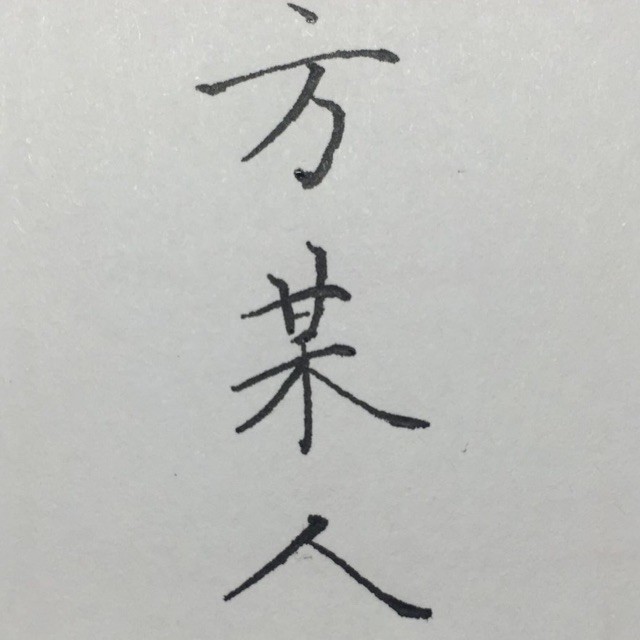 方某人